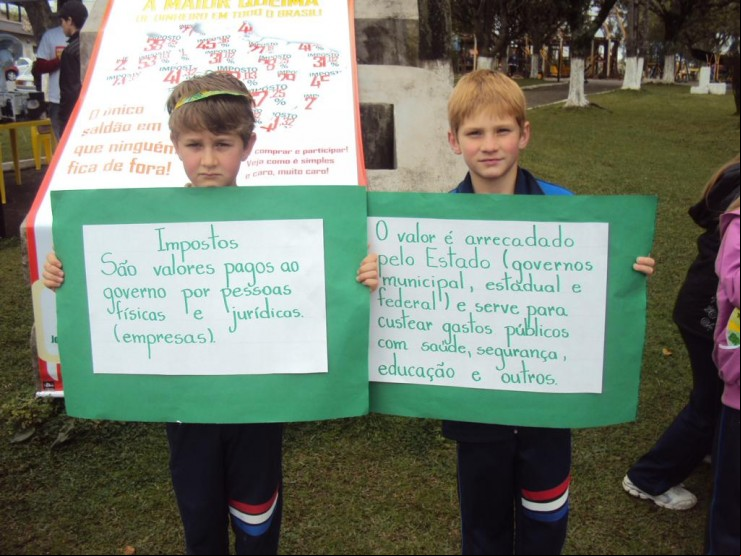 A MAIOR QUEIMA
DE DINHEIRO EM TODO O BRASIL!
O único
saldão em
que ninguém
fica de fora!
comprar e participar!
Veja como é simples
e caro, muito caro!
Impostos
São valores pagos ao
governo por pessoas
físicas e jurídicas.
(empresas).
O valor é arrecadado
pelo Estado (governos
municipal, estadual e
federal) e serve para
custear gastos públicos
com saúde, segurança,
educação e outros.